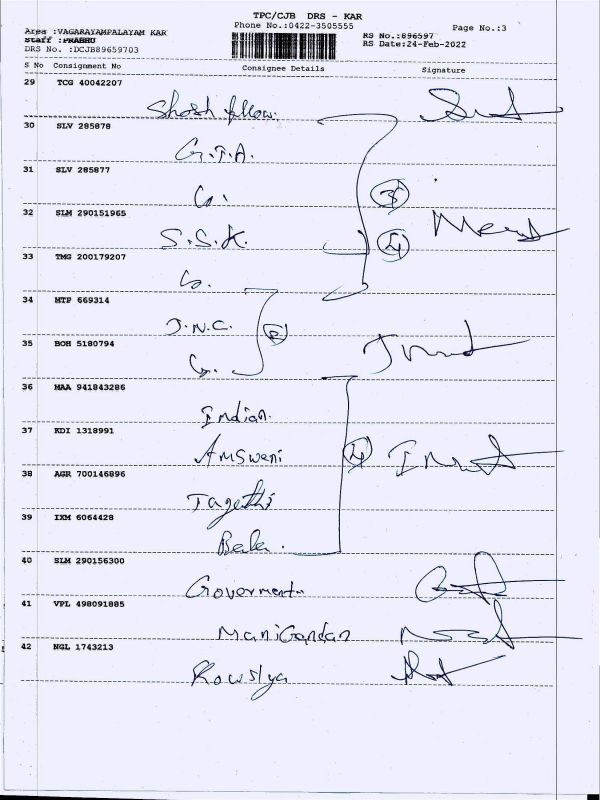 TPC/CJB DRS - KAR
Phone No.:0422-3505555
Page No.:3
Area :VAGARAYAMPALAYAM KAR
Staff :PRABHU
DRS No. :DCJB89659703
RS No.:896597
RS Date:24-Feb-2022
S No Consignment No Consignee Details Signature
29 TCG 40042207
30 SLV 285878
G.T.A.
31 SLV 285877
Co. 3
32 SLM 290151965
S.S.K. 4
33 TMG 200179207
Co.
34 MTP 669314
J.N.C. 2
35 BOH 5180794
Co.
36 MAA 941843286
Indian.
37 KDI 1318991
Amsweni 4
38 AGR 700146896
39 IXM 6064428
40 SLM 290156300
Goverment
41 VPL 498091885
ManiGandan
42 NGL 1743213
Kowslya